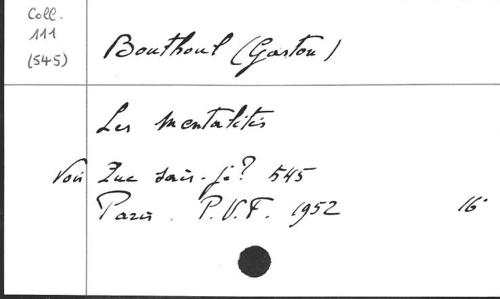 Coll.
111
(545)
Bouthoul (Gaston)
Les mentalités
Voir Que sais-je? 545
Paris. P.U.F. 1952 16°